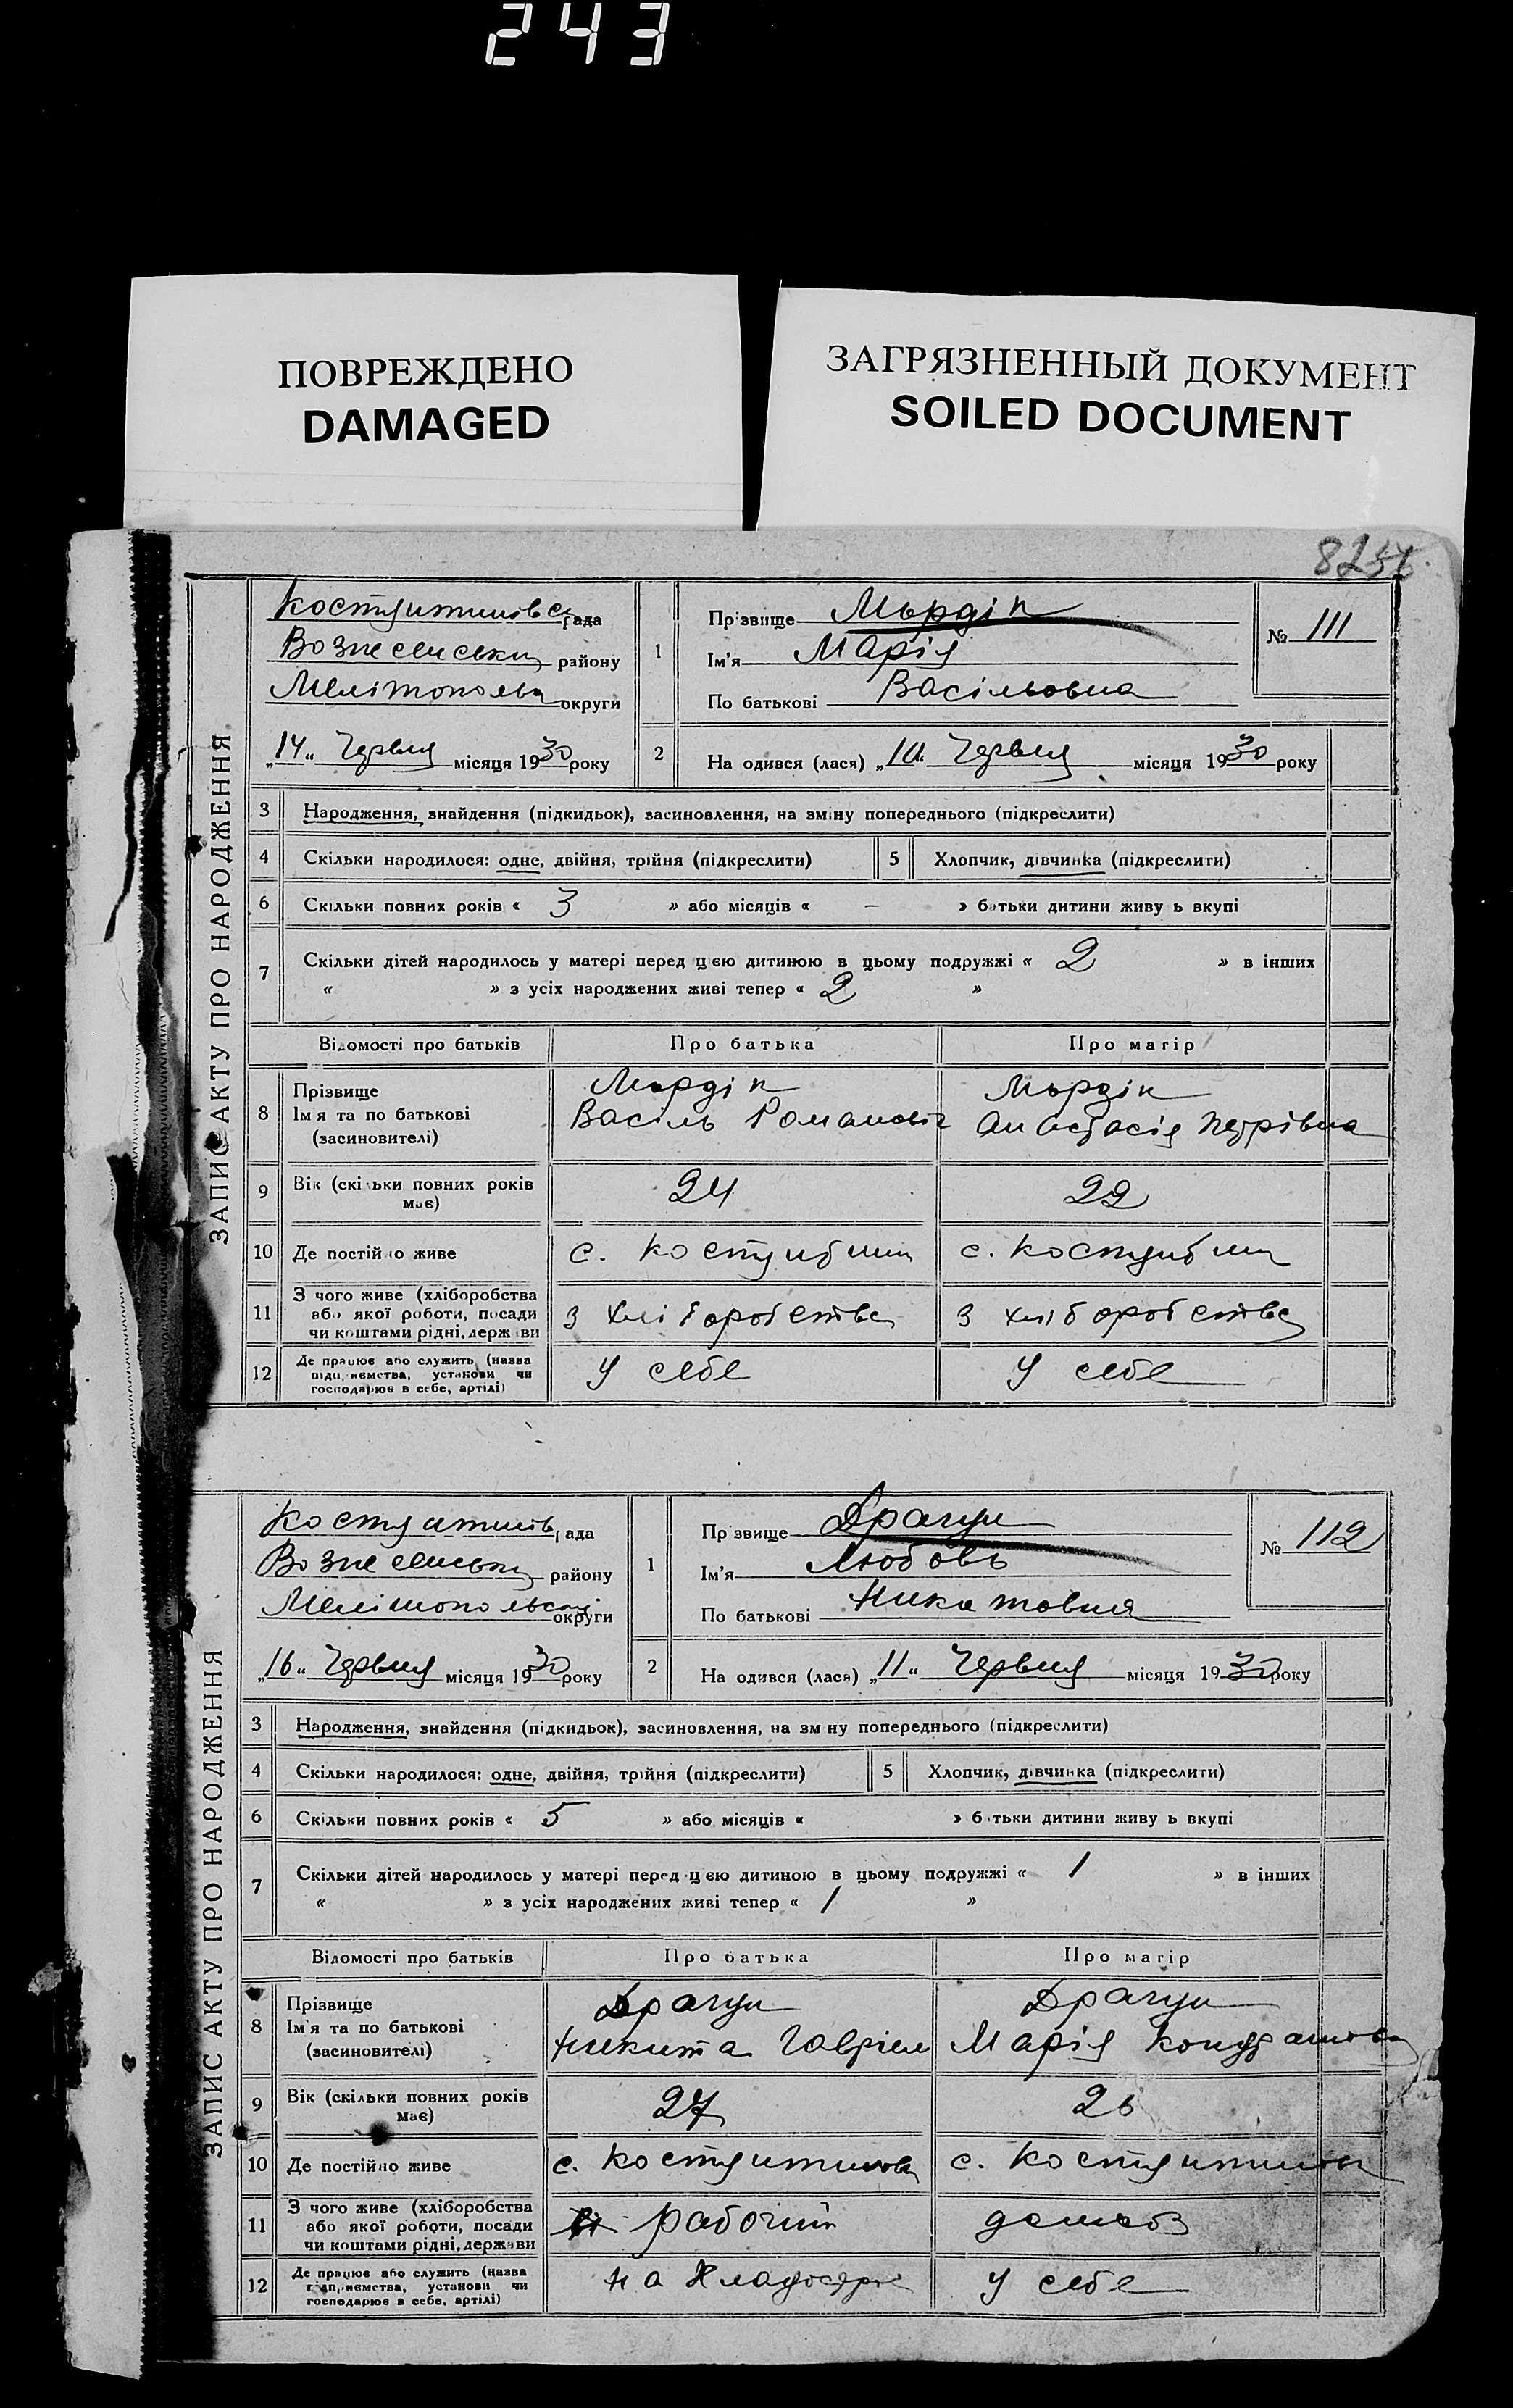 243
ПОВРЕЖДЕНО
DAMAGED
ЗАГРЯЗНЕННЫЙ ДОКУМЕНТ
SOILED DOCUMENT
ЗАПИС АКТУ ПРО НАРОДЖЕННЯ
рада
району
округи
„14“ Червня місяця 1930 року
1
Прізвище Мордік
Ім'я Марія
По батькові Васільовна
№ 111
2
На одився (лася) „10“ Червня місяця 1930 року
3 Народження, знайдення (підкидьок), засиновлення, на зміну попереднього (підкреслити)
4 Скільки народилося: одне, двійня, трійня (підкреслити) 5 Хлопчик, дівчинка (підкреслити)
6 Скільки повних років « 3 » або місяців « – » батьки дитини живу ь вкупі
7 Скільки дітей народилось у матері перед цією дитиною в цьому подружжі « 2 » в інших
« » з усіх народжених живі тепер « 2 »
Відомості про батьків Про батька Про матір
8 Прізвище Мордік Мордік
Ім'я та по батькові Василь Романович Анастасія Петрівна
(засиновителі)
9 Вік (скільки повних років має) 24 22
10 Де постійно живе с. с.
11 З чого живе (хліборобства або якої роботи, посади чи коштами рідні, держави з хліборобства з хліборобства
12 Де працює або служить (назва підприємства, установи чи господарює в себе, артілі) У себе У себе
ЗАПИС АКТУ ПРО НАРОДЖЕННЯ
рада
району
округи
„16“ Червня місяця 1930 року
1
Пр звище Драгун
Ім'я Любовь
По батькові
№ 112
2
На одився (лася) „11“ Червня місяця 1930 року
3 Народження, знайдення (підкидьок), засиновлення, на зм ну попереднього (підкреслити)
4 Скільки народилося: одне, двійня, трійня (підкреслити) 5 Хлопчик, дівчинка (підкреслити)
6 Скільки повних років « 5 » або місяців « » батьки дитини живу ь вкупі
7 Скільки дітей народилось у матері перед цією дитиною в цьому подружжі « 1 » в інших
« » з усіх народжених живі тепер « 1 »
Відомості про батьків Про батька Про матір
8 Прізвище Драгун Драгун
Ім'я та по батькові Никита Гавріел Марія
(засиновителі)
9 Вік (скільки повних років має) 27 26
10 Де постійно живе с. с.
11 З чого живе (хліборобства або якої роботи, посади чи коштами рідні, держави рабочий
12 Де працює або служить (назва підприємства, установи чи господарює в себе, артілі) на У себе